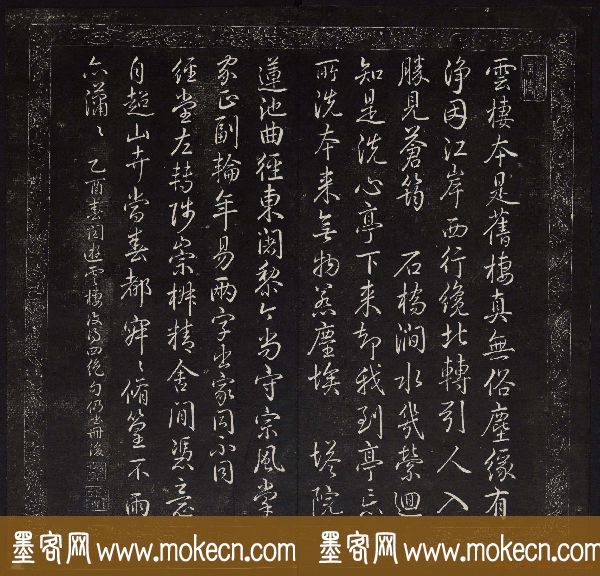 雲棲本是舊棲真無俗塵緣有
净因江岸西行纔北轉引人入
勝見蒼筠 石橋澗水幾縈迴
知是洗心亭下来却我到亭忘
所洗本来無物惹塵埃 塔院
蓮池曲徑東闍黎今尚守宗風掌
家正副輪年易兩字出家同不同
經堂左轉陟崇椒精舍間憑意
自超山寺當春都寂〻脩篁不雨
亦瀟〻 乙酉春閏遊雲棲復得四絶句仍書冊後
墨客网 www.mokecn.com 墨客网 www.mokecn.com